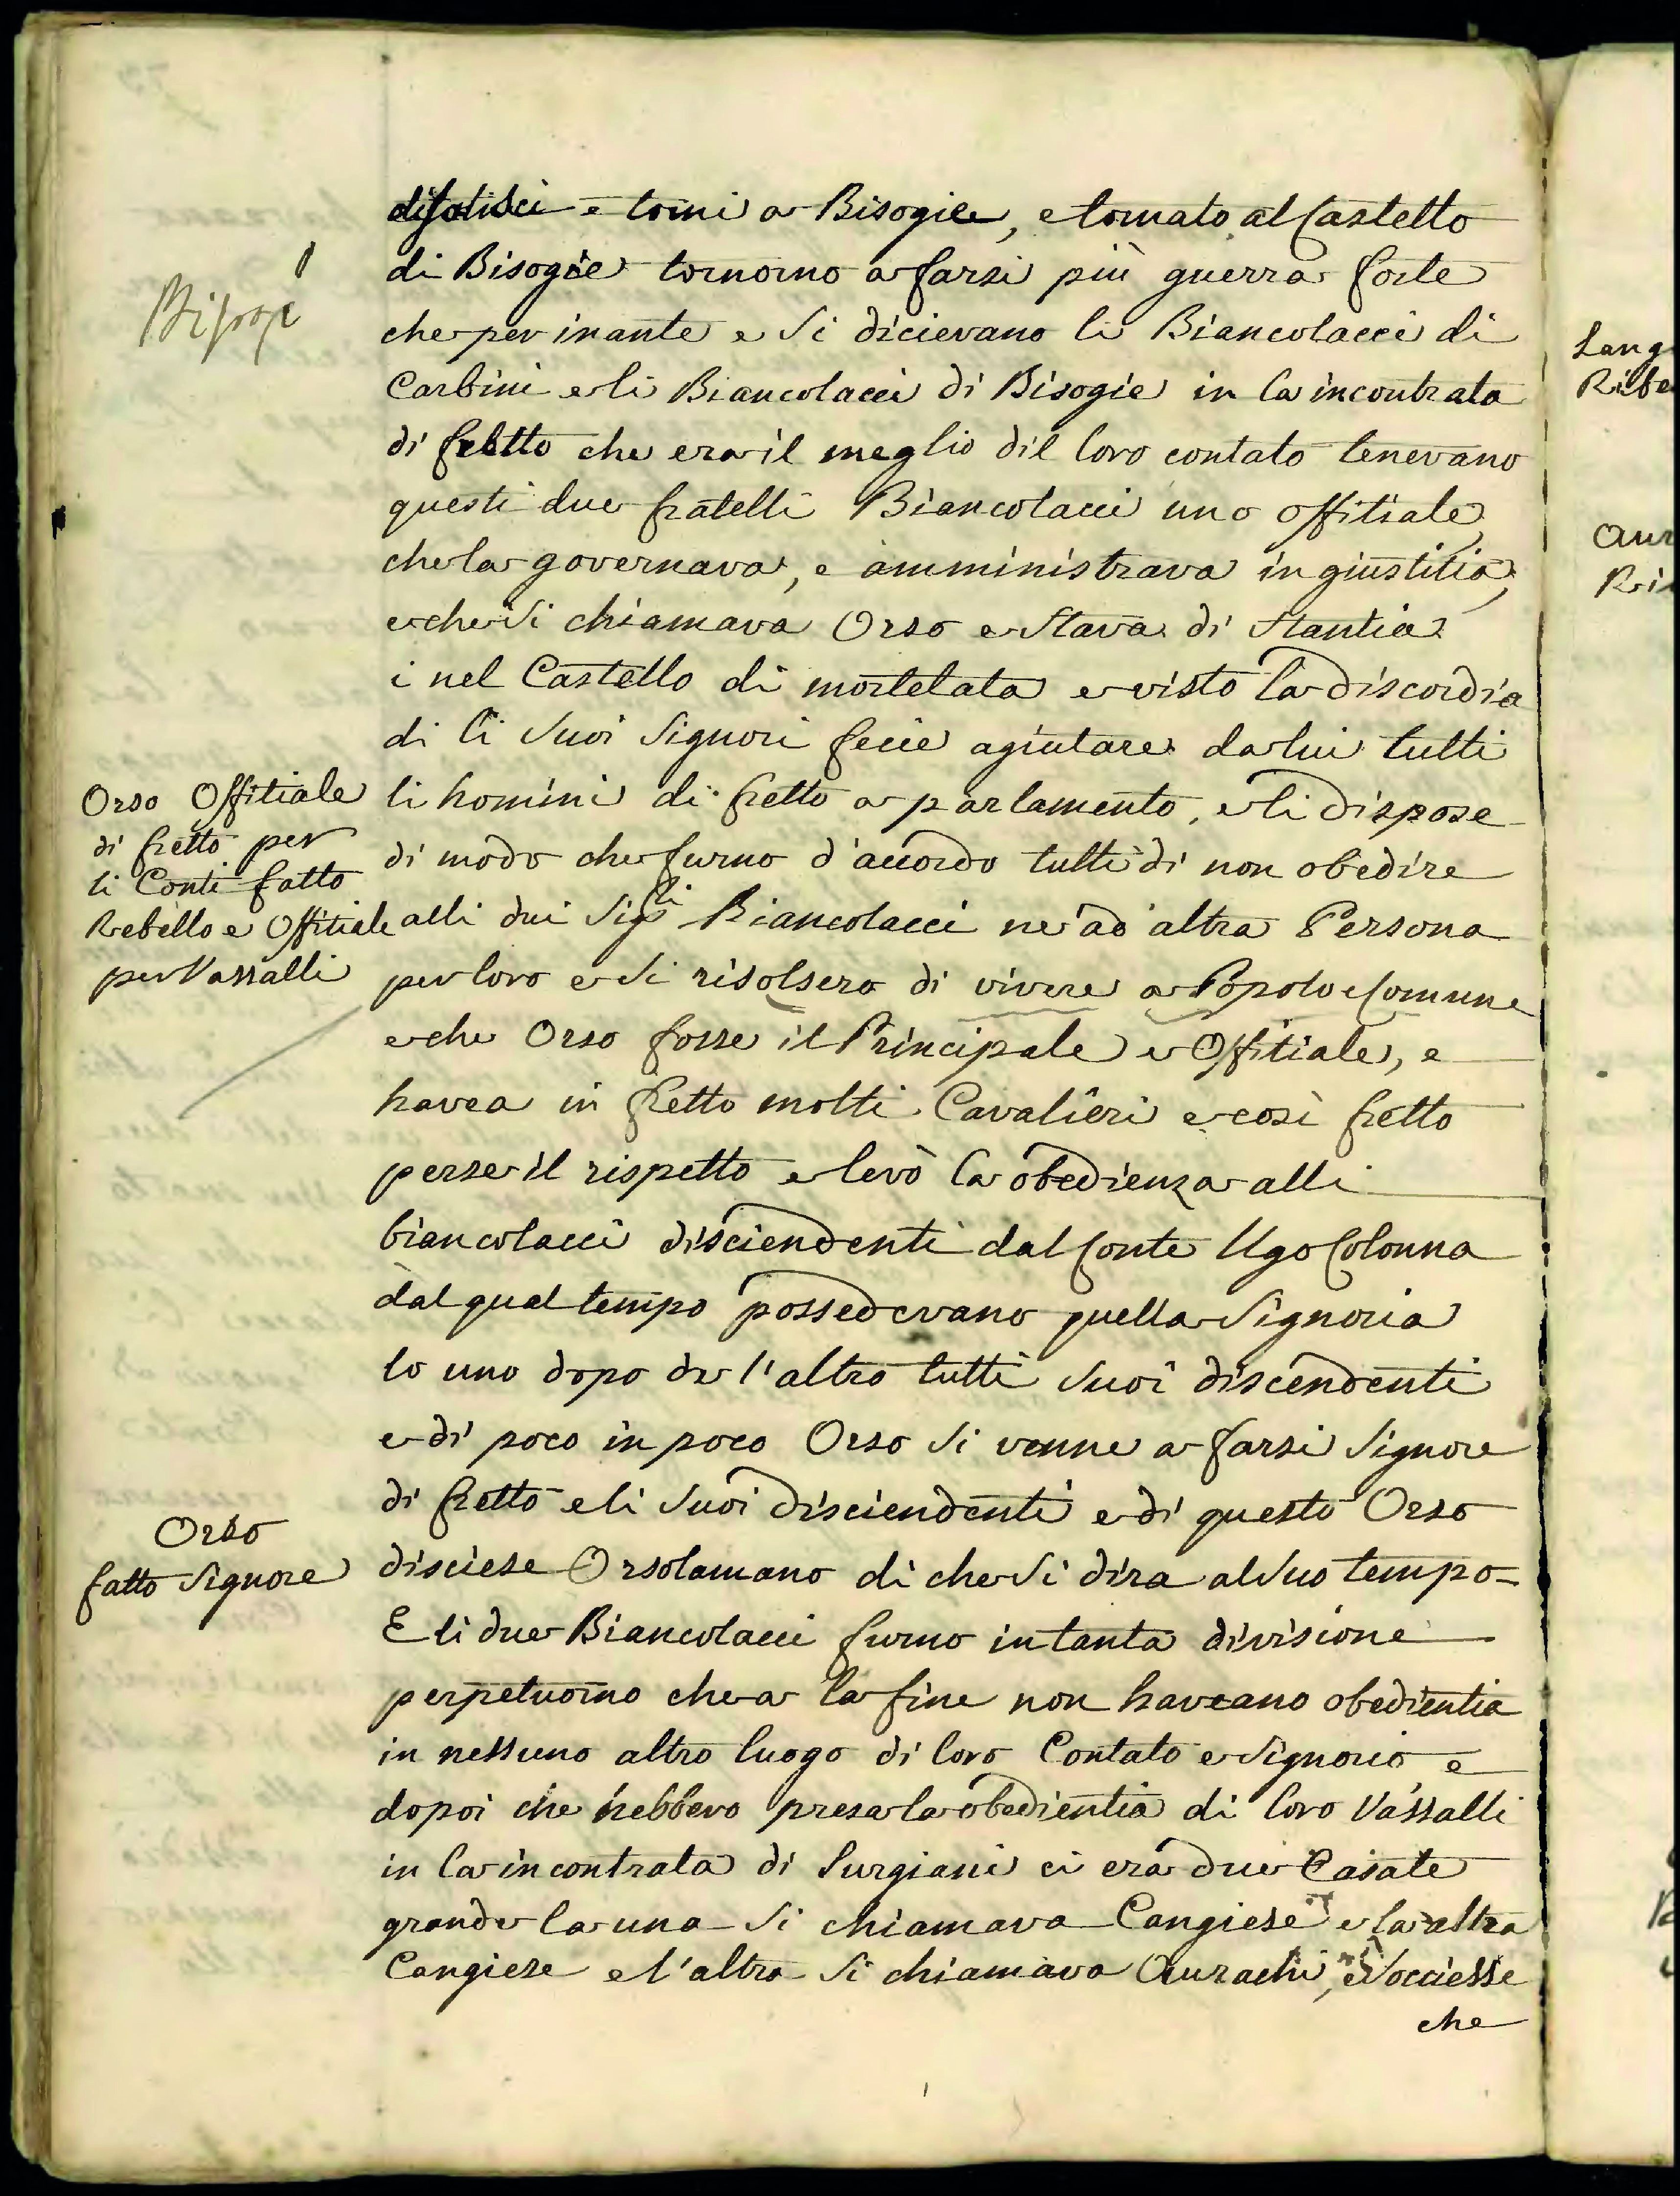 e torni a Bisogie, e tornato al Castello
di Bisogie tornorno a farsi più guerra forte
che per inante e si dicievano li Biancolacci di
Carbini e li Biancolacci di Bisogie in la incontrata
di fretto che era il meglio dil loro contato tenevano
questi due fratelli Biancolacci uno offitiale
che la governava, e amministrava in giustitia,
e che si chiamava Orso e stava di stantia
i nel Castello di mortelata e visto la discordia
di li suoi signori fecie agiutare da lui tutti
li homini di fretto a parlamento, e li dispose
di modo che furno d'accordo tutti di non obedire
alli dui Sig.li Biancolacci ne ad altra Persona
per loro e si risolsero di vivere a Popolo e Comune
e che Orso fosse il Principale e Offitiale, e
havea in fretto molti Cavalieri e così fretto
perse il rispetto e levò la obedienza alli
biancolacci disciendenti dal Conte Ugo Colonna
dal qual tempo possedevano quella signoria
lo uno dopo de l'altro tutti suoi discendenti
e di poco in poco Orso si venne a farsi signore
di fretto e li suoi disciendenti e di questo Orso
disciese Orsolamano di che si dira al suo tempo
E li due Biancolacci furno in tanta divisione
perpetuorno che a la fine non haveano obedientia
in nessuno altro luogo di loro Contato e signorio e
dopoi che hebbero presa la obedientia di loro Vassalli
in la incontrata di Surgiani ci era due Casate
grande la una si chiamava Cangiese e la altra
Cangiese e l'altra si chiamava Aurachi, e soccièsse
che
Bisogi
Orso Offitiale
di fretto per
li Conti fatto
Rebello e Offitiale
per Vassalli
Orso
fatto signore